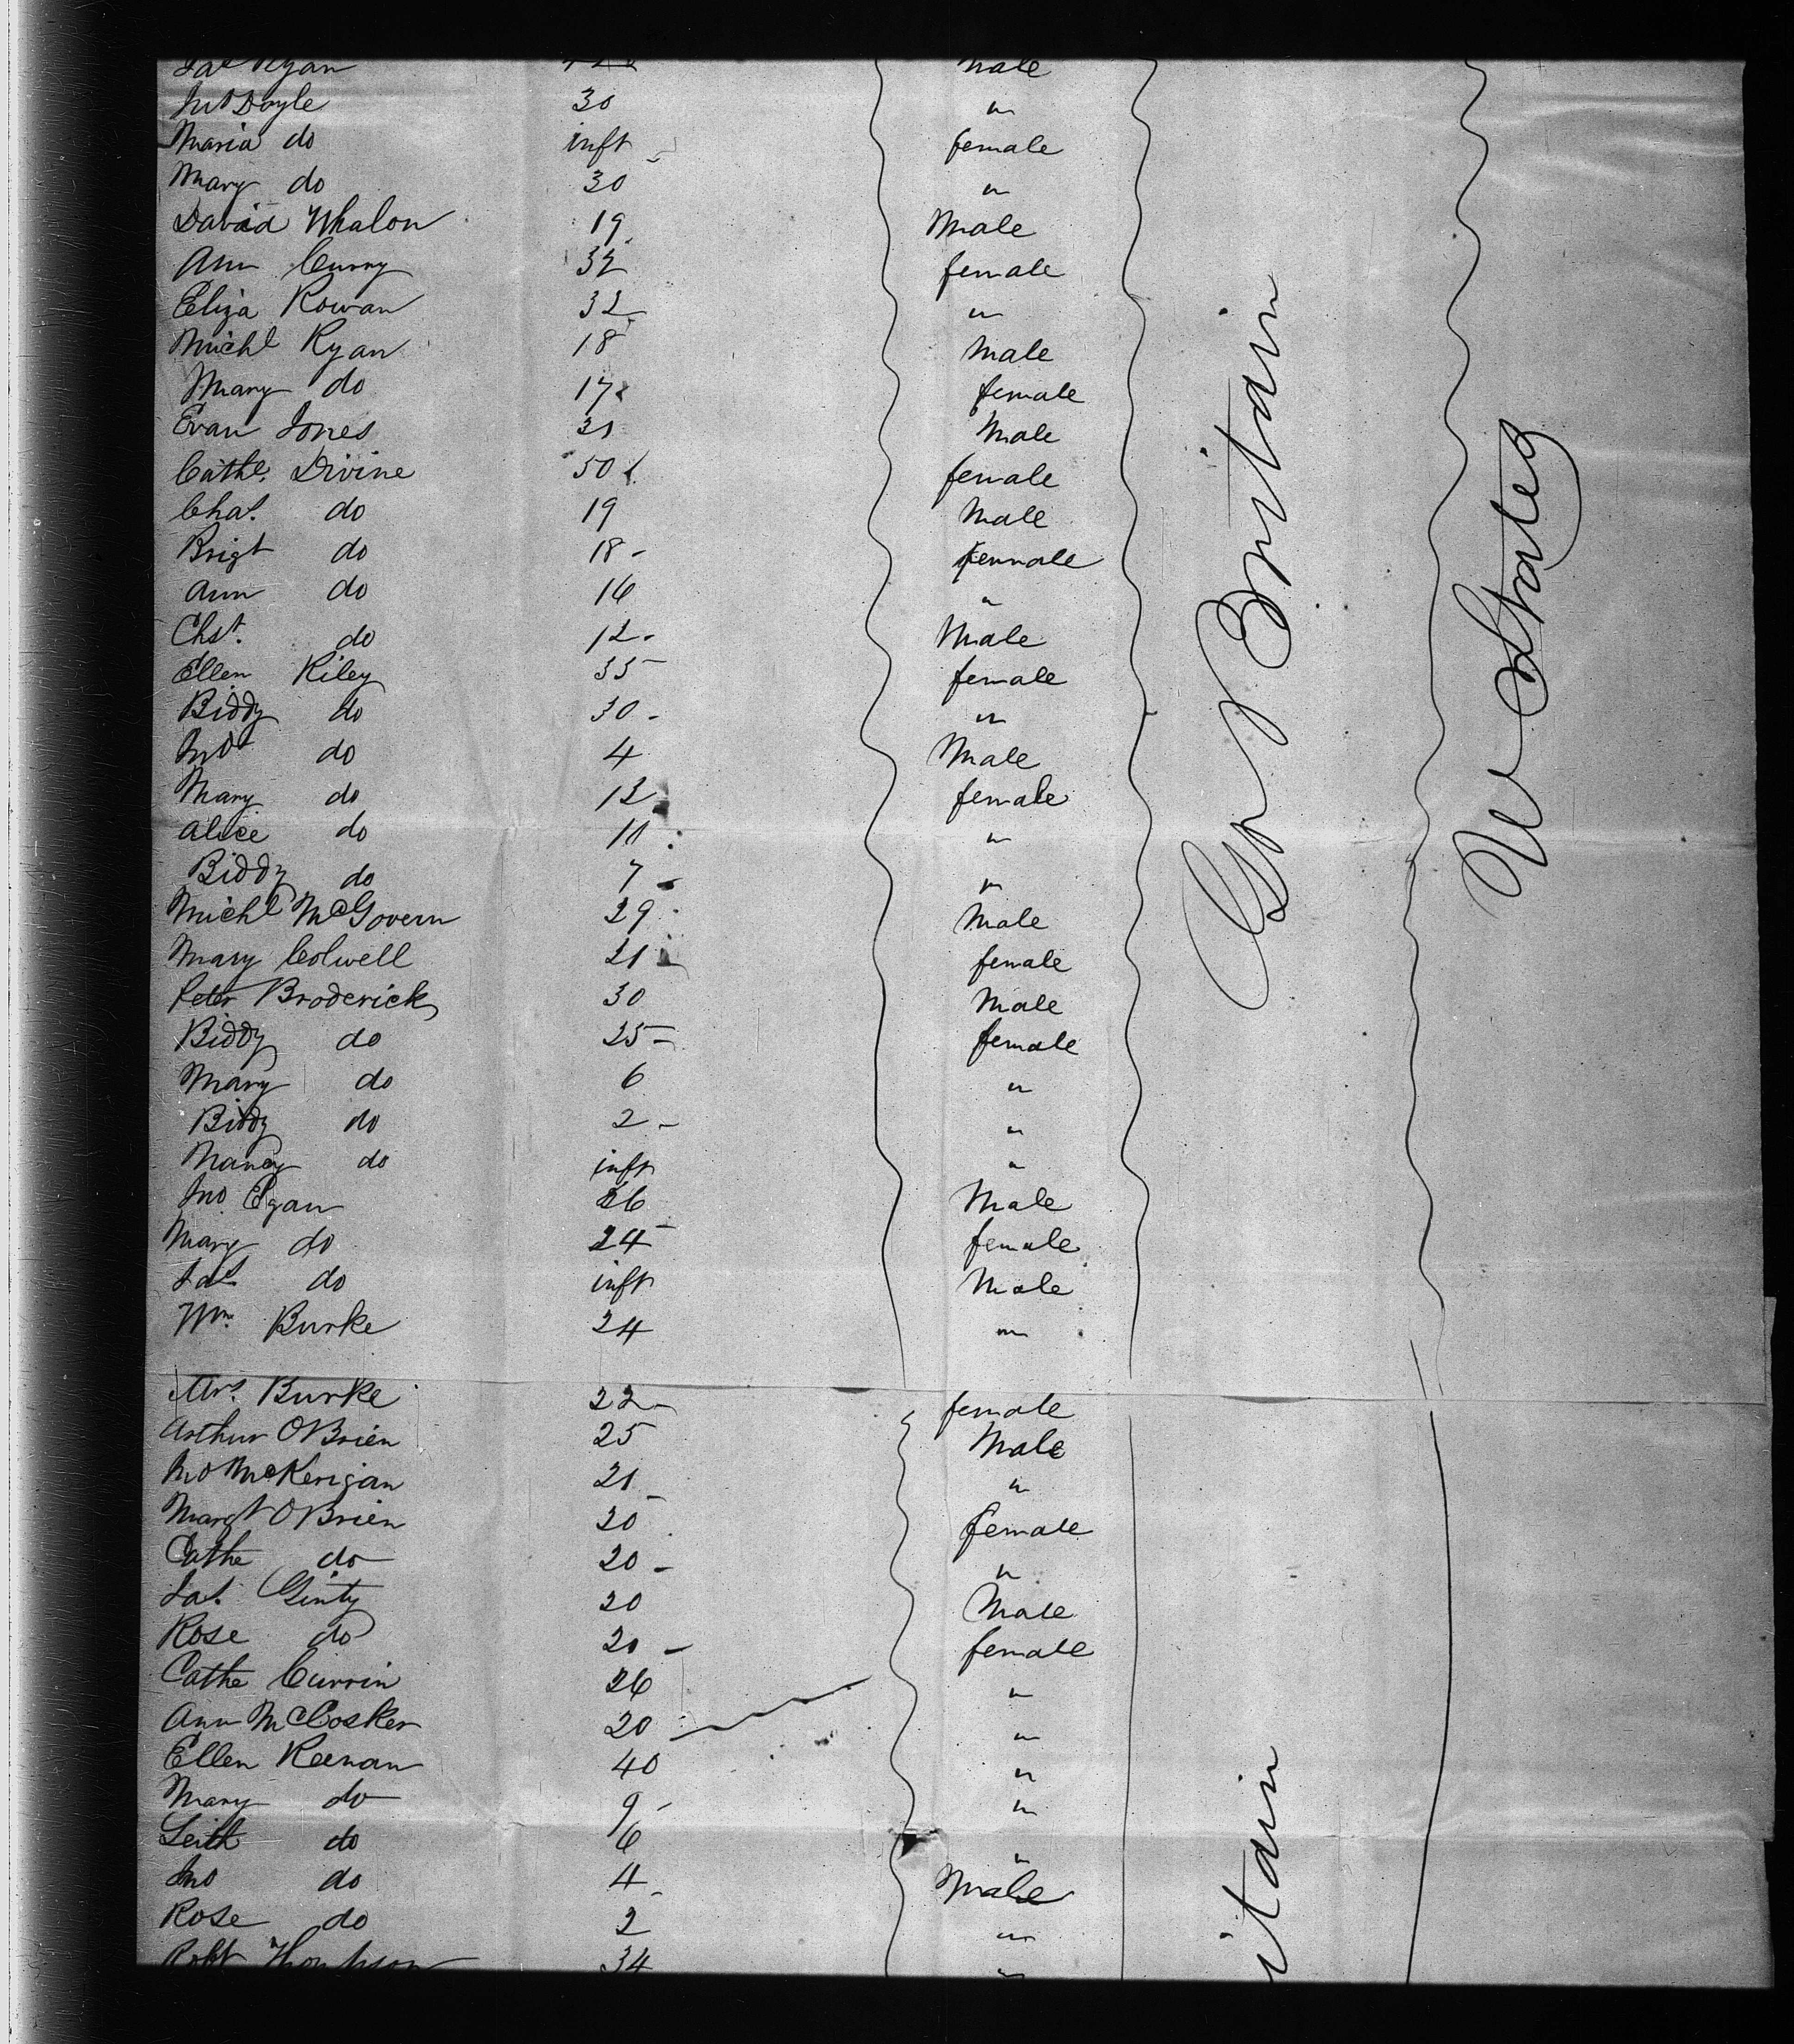 Jas Ryan male
Jno Doyle 30 "
Maria do inft female
Mary do 30 "
David Whalon 19 Male
Ann Curry 32 female
Eliza Rowan 32 "
Michl Ryan 18 Male
Mary do 17 female
Evan Jones 31 Male
Cathe. Divine 50 female
Chas. do 19 Male
Brigt do 18 female
Ann do 16 "
Chst. do 12 Male
Ellen Riley 35 female
Biddy do 30 "
Jno do 4 Male
Mary do 12 female
Alice do 11 "
Biddy do 7 "
Michl McGovern 29 Male
Mary Colwell 21 female
Peter Broderick 30 Male
Biddy do 25 female
Mary do 6 "
Biddy do 2 "
Nancy do inft "
Jno. Egan 26 Male
Mary do 24 female
Jas do inft Male
Wm. Burke 24 "
Mrs. Burke 22 female
Arthur OBrien 25 Male
Jno McKerigan 21 "
Margt OBrien 20 female
Cathe do 20 "
Jas. Ginty 20 Male
Rose do 20 female
Cathe Currin 26 "
Ann McCosker 20 "
Ellen Keenan 40 "
Mary do 9 "
do 6 "
Jno do 4 Male
Rose do 2 "
Robt Thompson 34 "
Gt Britain
U States
itain